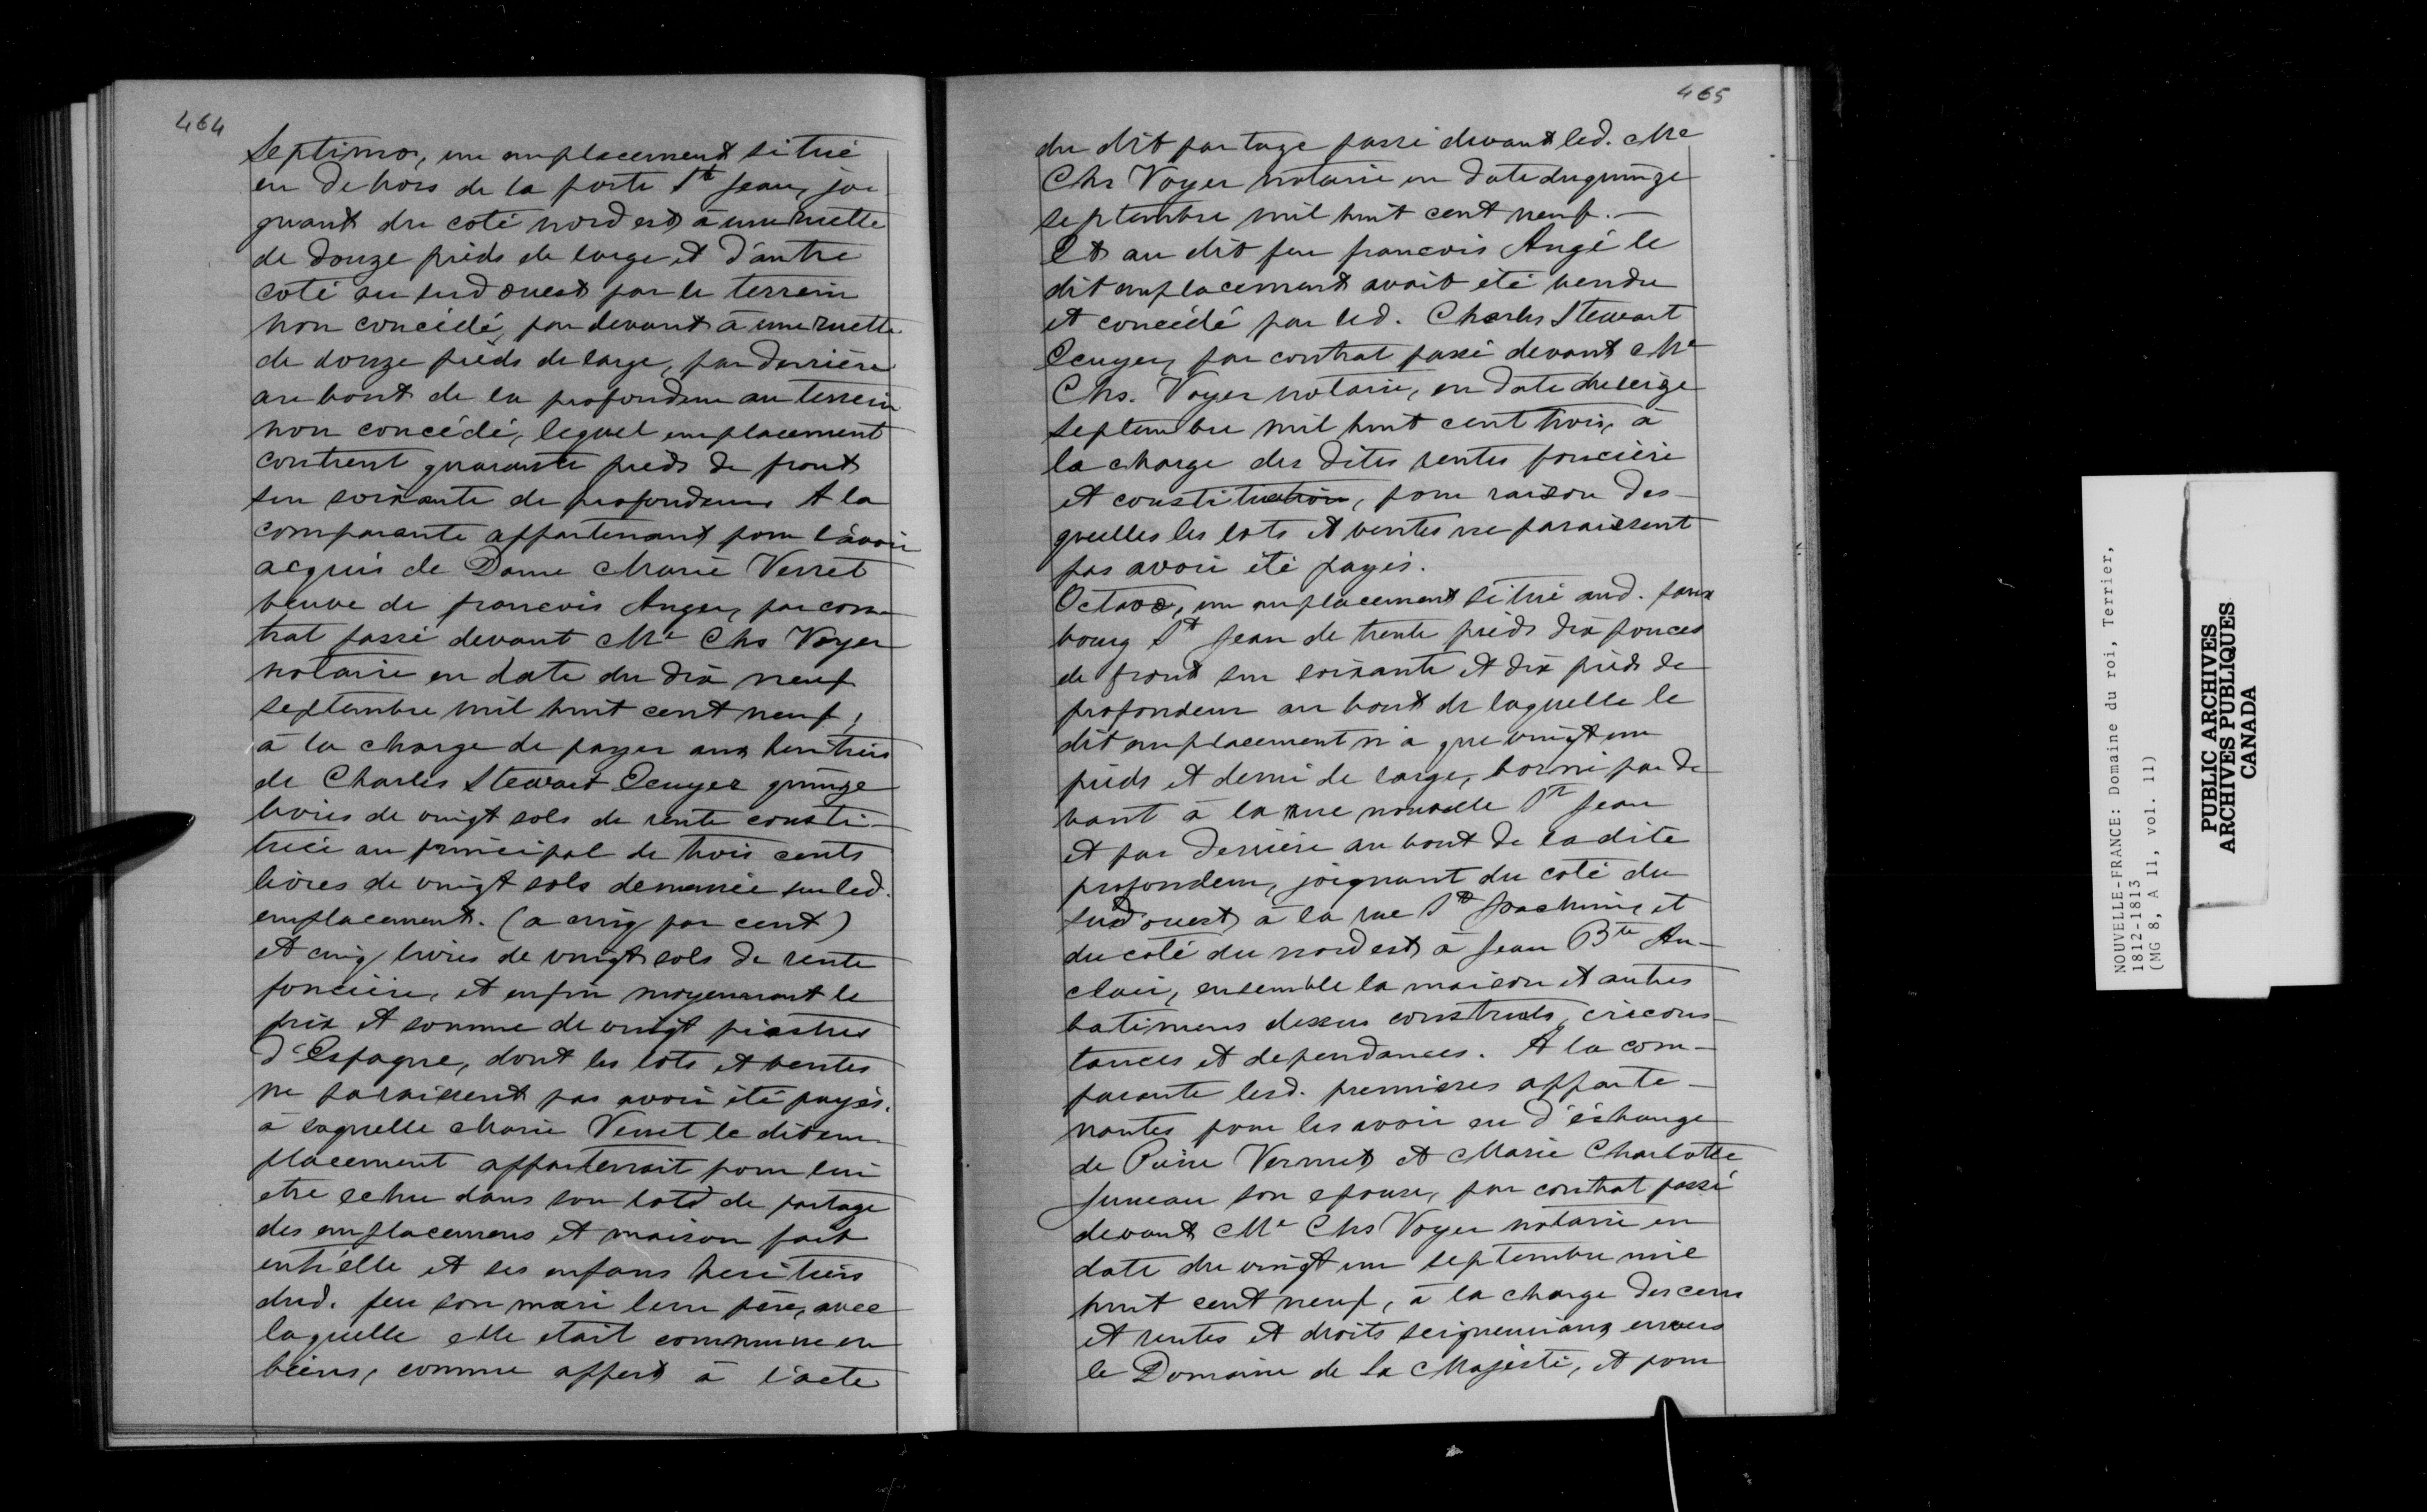 464
Septimo, un emplacement situé
en dehors de la porte St Jean, joi
gnant du coté nord est à une ruelle
de douze pieds de large et d'autre
coté au sud ouest par le terrein
non concédé, par devant à une ruelle
de douze pieds de large, par derrière
au bout de la profondeur au terrein
non concédé, lequel emplacement
contient quarante pieds de front
sur soixante de profondeur A la
comparante appartenant pour l'avoir
acquis de Dame Marie Verret
veuve de francois Anger, par con
trat passé devant Me Chs Voyer
notaire en date du dix neuf
septembre mil huit cent neuf,
à la charge de payer aux heritiers
de Charles Stewart Ecuyer quinze
livres de vingt sols de rente consti-
tuée au principal de trois cents
livres de vingt sols demeurée sur led.
emplacement. (a cinq par cent)
et cinq livres de vingt sols de rente
foncière, et enfin moyennant le
prix et somme de vingt piastres
d'Espagne, dont les lots et ventes
ne paraissent pas avoir été payés.
à laquelle Marie Verret le dit em
placement appartenait pour lui
etre echu dans son lot de partage
des emplacemens et maison fait
entr'elle et ses enfans heritiers
dud. feu son mari leur père, avec
laquelle elle etait commune en
biens, comme appert à l'acte
465
du dit partage passé devant led. Me
Chs Voyer notaire en date du quinze
septembre mil huit cent neuf.—
Et au dit feu francois Angé le
dit emplacement avait été vendu
et concédé par led. Charles Stewart
Ecuyer, par contrat passé devant Me
Chs. Voyer notaire, en date du seize
septembre mil huit cent trois, à
la charge des dites rentes foncière
et constitution, pour raison des-
quelles les lots et ventes ne paraissent
pas avoir été payés.
Octavo, un emplacement situé aud. faux
bourg St Jean de trente pieds dix pouces
de front sur soixante et dix pieds de
profondeur au bout de laquelle le
dit emplacement n'a que vingt un
pieds et demi de large, borné par de
vant à la rue nouvelle St Jean
et par derrière au bout de la dite
profondeur, joignant du coté du
sud ouest à la rue St Joachim, et
du coté du nord est à Jean Bte Au-
clair, ensemble la maison et autres
batimens dessus construits, circons-
tances et dependances. A la com-
parante lesd. premières apparte-
nantes pour les avoir eu d'échange
de Pierre Vermet et Marie Charlotte
Juneau son epouse, par contrat passé
devant Me Chs Voyer notaire en
date du vingt un septembre mil
huit cent neuf, à la charge des cens
et rentes et droits seigneuriaux envers
le Domaine de Sa Majesté, et pour
NOUVELLE-FRANCE: Domaine du roi, Terrier,
1812-1813
(MG 8, A 11, vol. 11)
PUBLIC ARCHIVES
ARCHIVES PUBLIQUES
CANADA